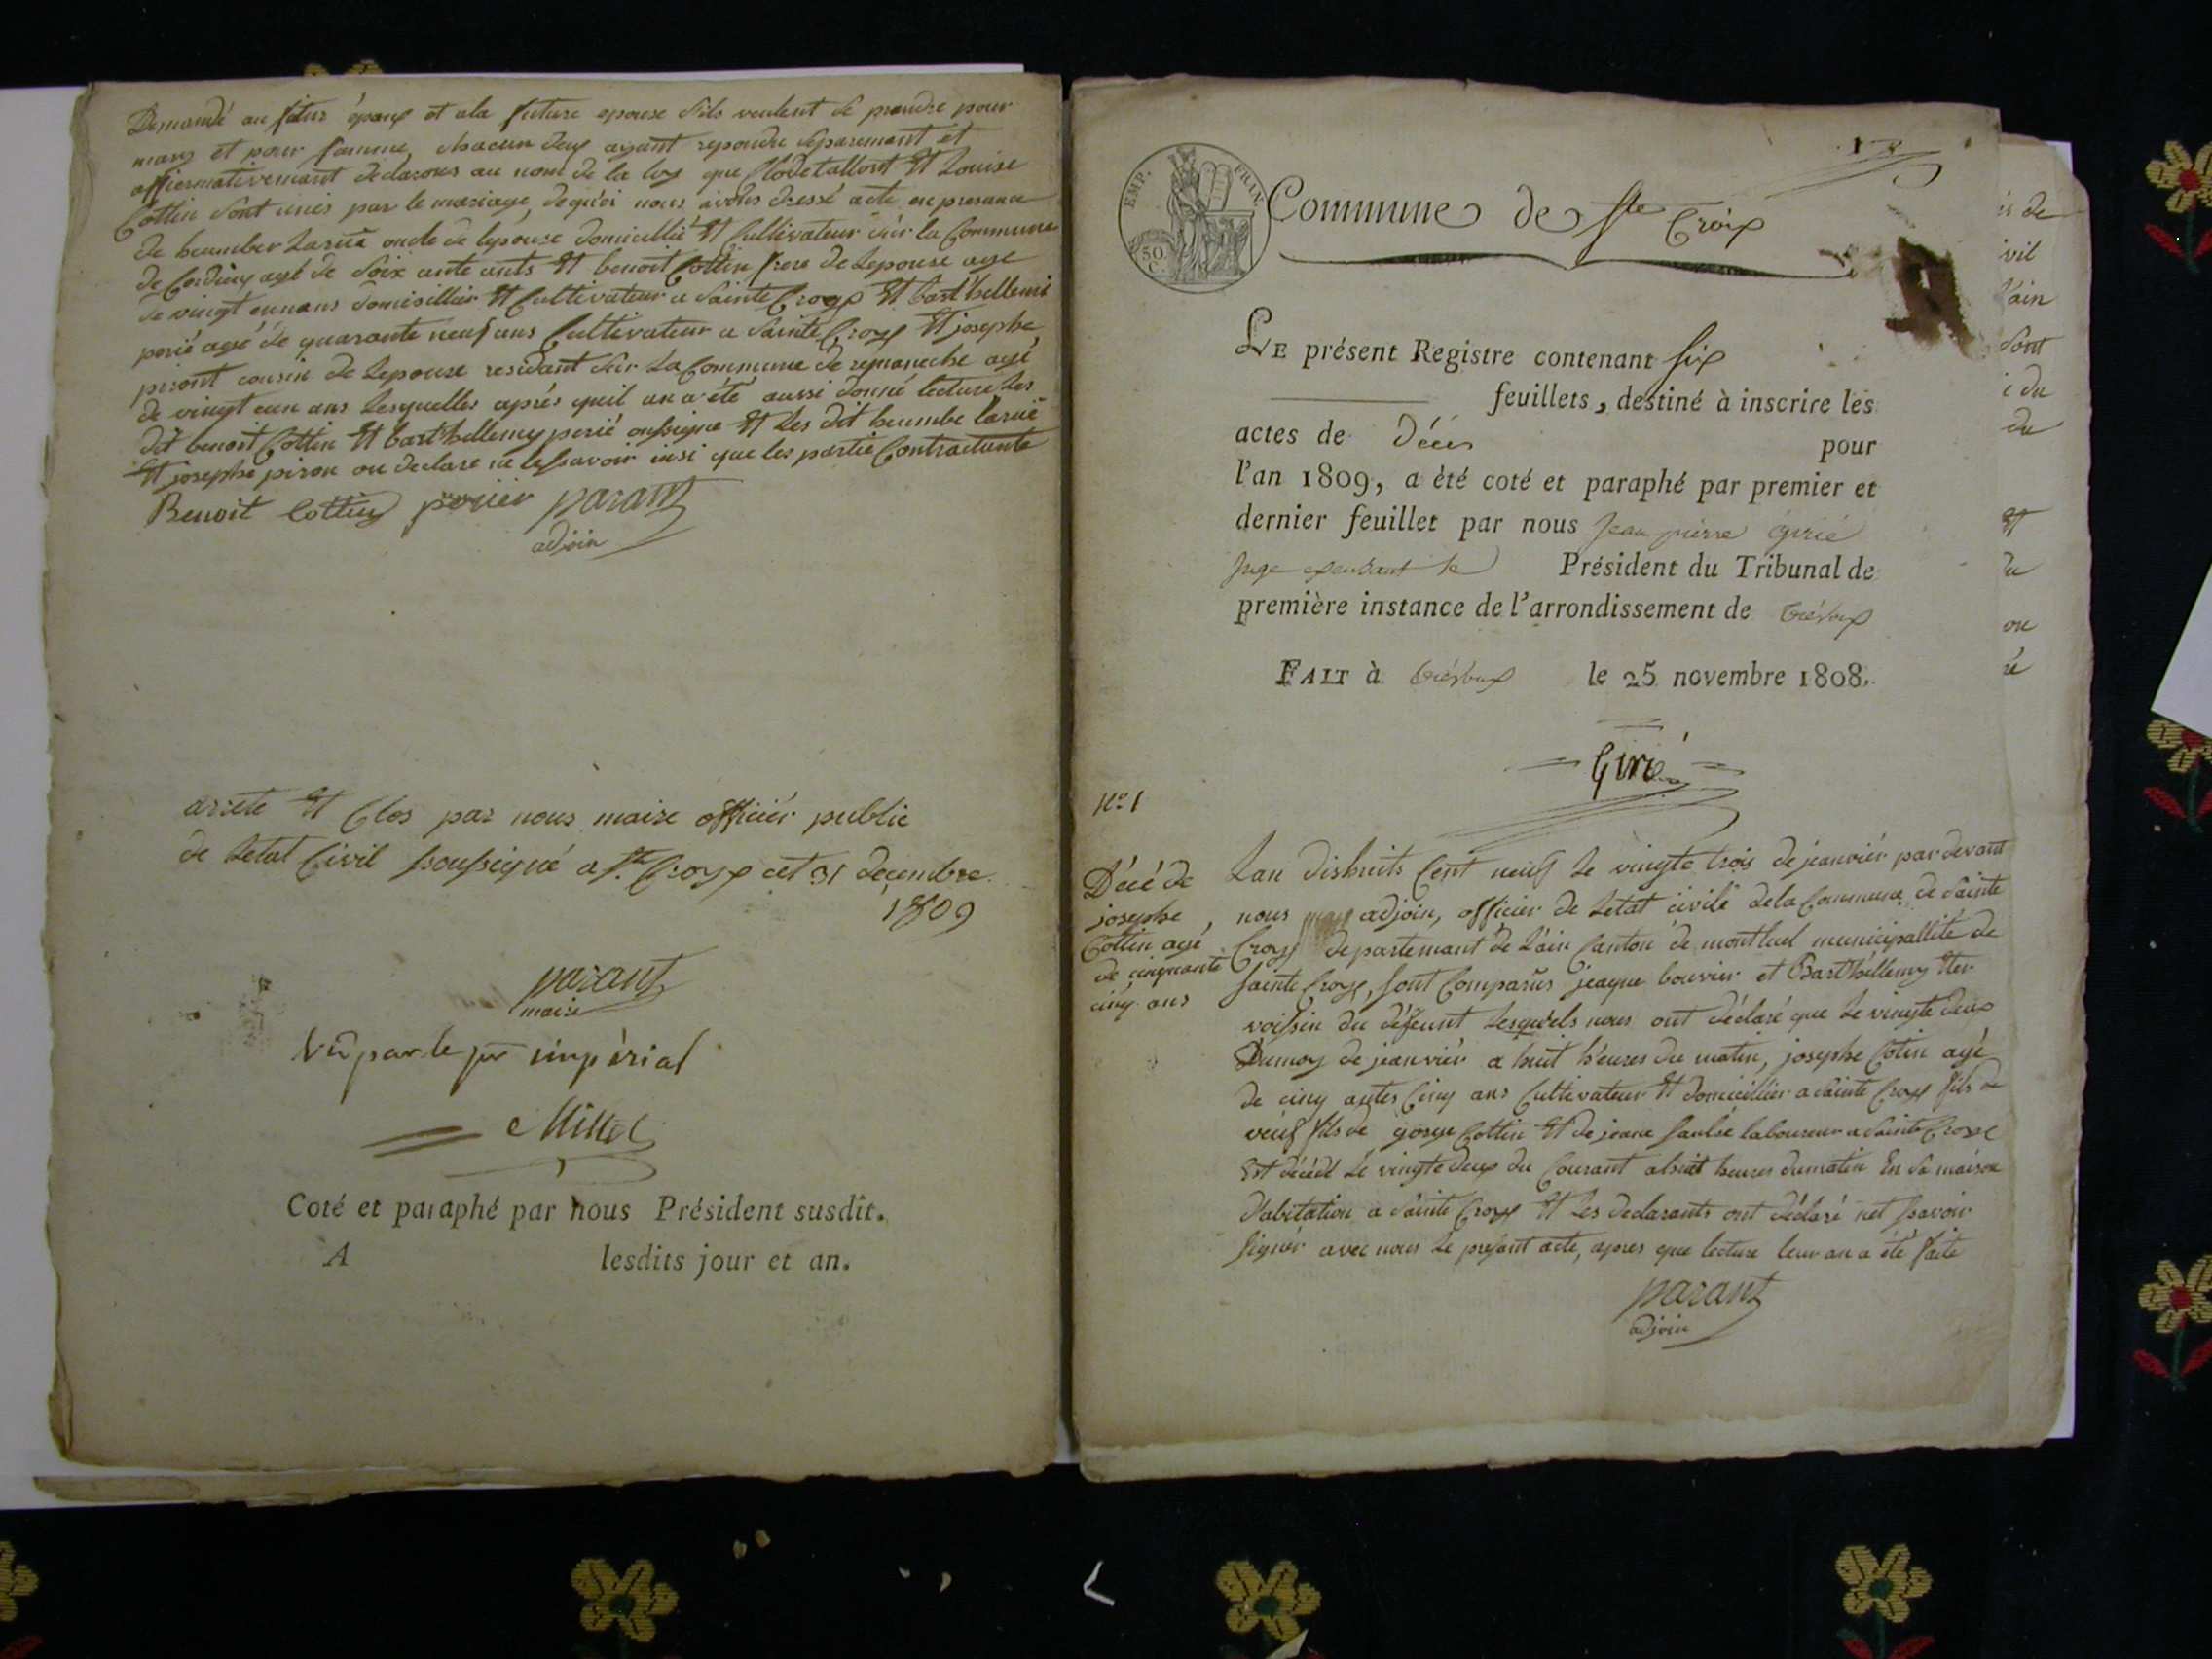 Demandé au futur époux et ala future epouse sils veulent se prandre pour
mary et pour famme, chacun deux ayant repondu separemant et
affiermativemant declarons au nom de la loy que Clodetallort Et Louise
Cottin sont unis par le mariage, de quoi nous avons dressé acte en presance
de heumber Larue oncle de lepouse domicillié Et Cultivateur sur la Commune
de Cordieux agé de soix ante ants Et benoit Cottin frere de Lepouse age
de vingt eunans domicillier Et Cultivateur a Sainte Croyx Et barthellemi
perié agé de quarante neuf ans Cultivateur a Sainte Croyx Et josephe
piront cousin de Lepouse residant sur La Commune de romaneche agé
de vingt eun ans Lesquelles aprés quil an a été aussi donné lecture Les
dit benoit Cottin Et barthellemy perié onsigné Et Les dit heumbe larue
Et josephe piron on declare ne le savoir insi que les partie Contractante
Benoit Cottin perier parant
adjoin
arrete Et Clos par nous maire officiér public
de Letat Civil soussigné a Ste Croyx cet 31 decembre
1809
parant
maire
Vu par le pr impérial
Millet
Coté et paraphé par nous Président susdit.
A lesdits jour et an.
1
EMP. FRAN.
50 C.
Commune de Ste Croix
LE présent Registre contenant six
feuillets, destiné à inscrire les
actes de Décès pour
l'an 1809, a été coté et paraphé par premier et
dernier feuillet par nous Jean pierre Girié
Juge Président du Tribunal de
première instance de l'arrondissement de Trévoux
FAIT à Trévoux le 25 novembre 1808.
Girié
No 1
Décé de
josephe
Cottin agé
de cinquante
cinq ans
Lan dishuits Cent neuf Le vingte trois de jeanviér par devant
nous adjoin, officier de Letat civile dela Commune de Sainte
Croyx departemant de Lain Canton de montluel municipallité de
Sainte Croyx, sont Comparus jeaque bouvier et Barthéllemy
voissin du défeunt Lesquiels nous ont déclaré que Le vingte deux
Dumoy de jeanviér a huit h'eures du matin, josephe Cotin agé
de cinq antes Cinq ans Cultivateur Et domicillier a Sainte Croyx fils de
veuf fils de gorge Cottin Et de jeane Laboureur a Sainte Croyx
Est décédé Le vingte deux du Courant ahuit heures dumatin En sa maison
d'abitation a Sainte Croyx Et Les declarants ont déclaré net savoir
signér avec nous Le present acte, apres que lecture leur an a été faite
parant
adjoin
is de
ivil
Lain
sont
i du
du
Et
du
on
ré